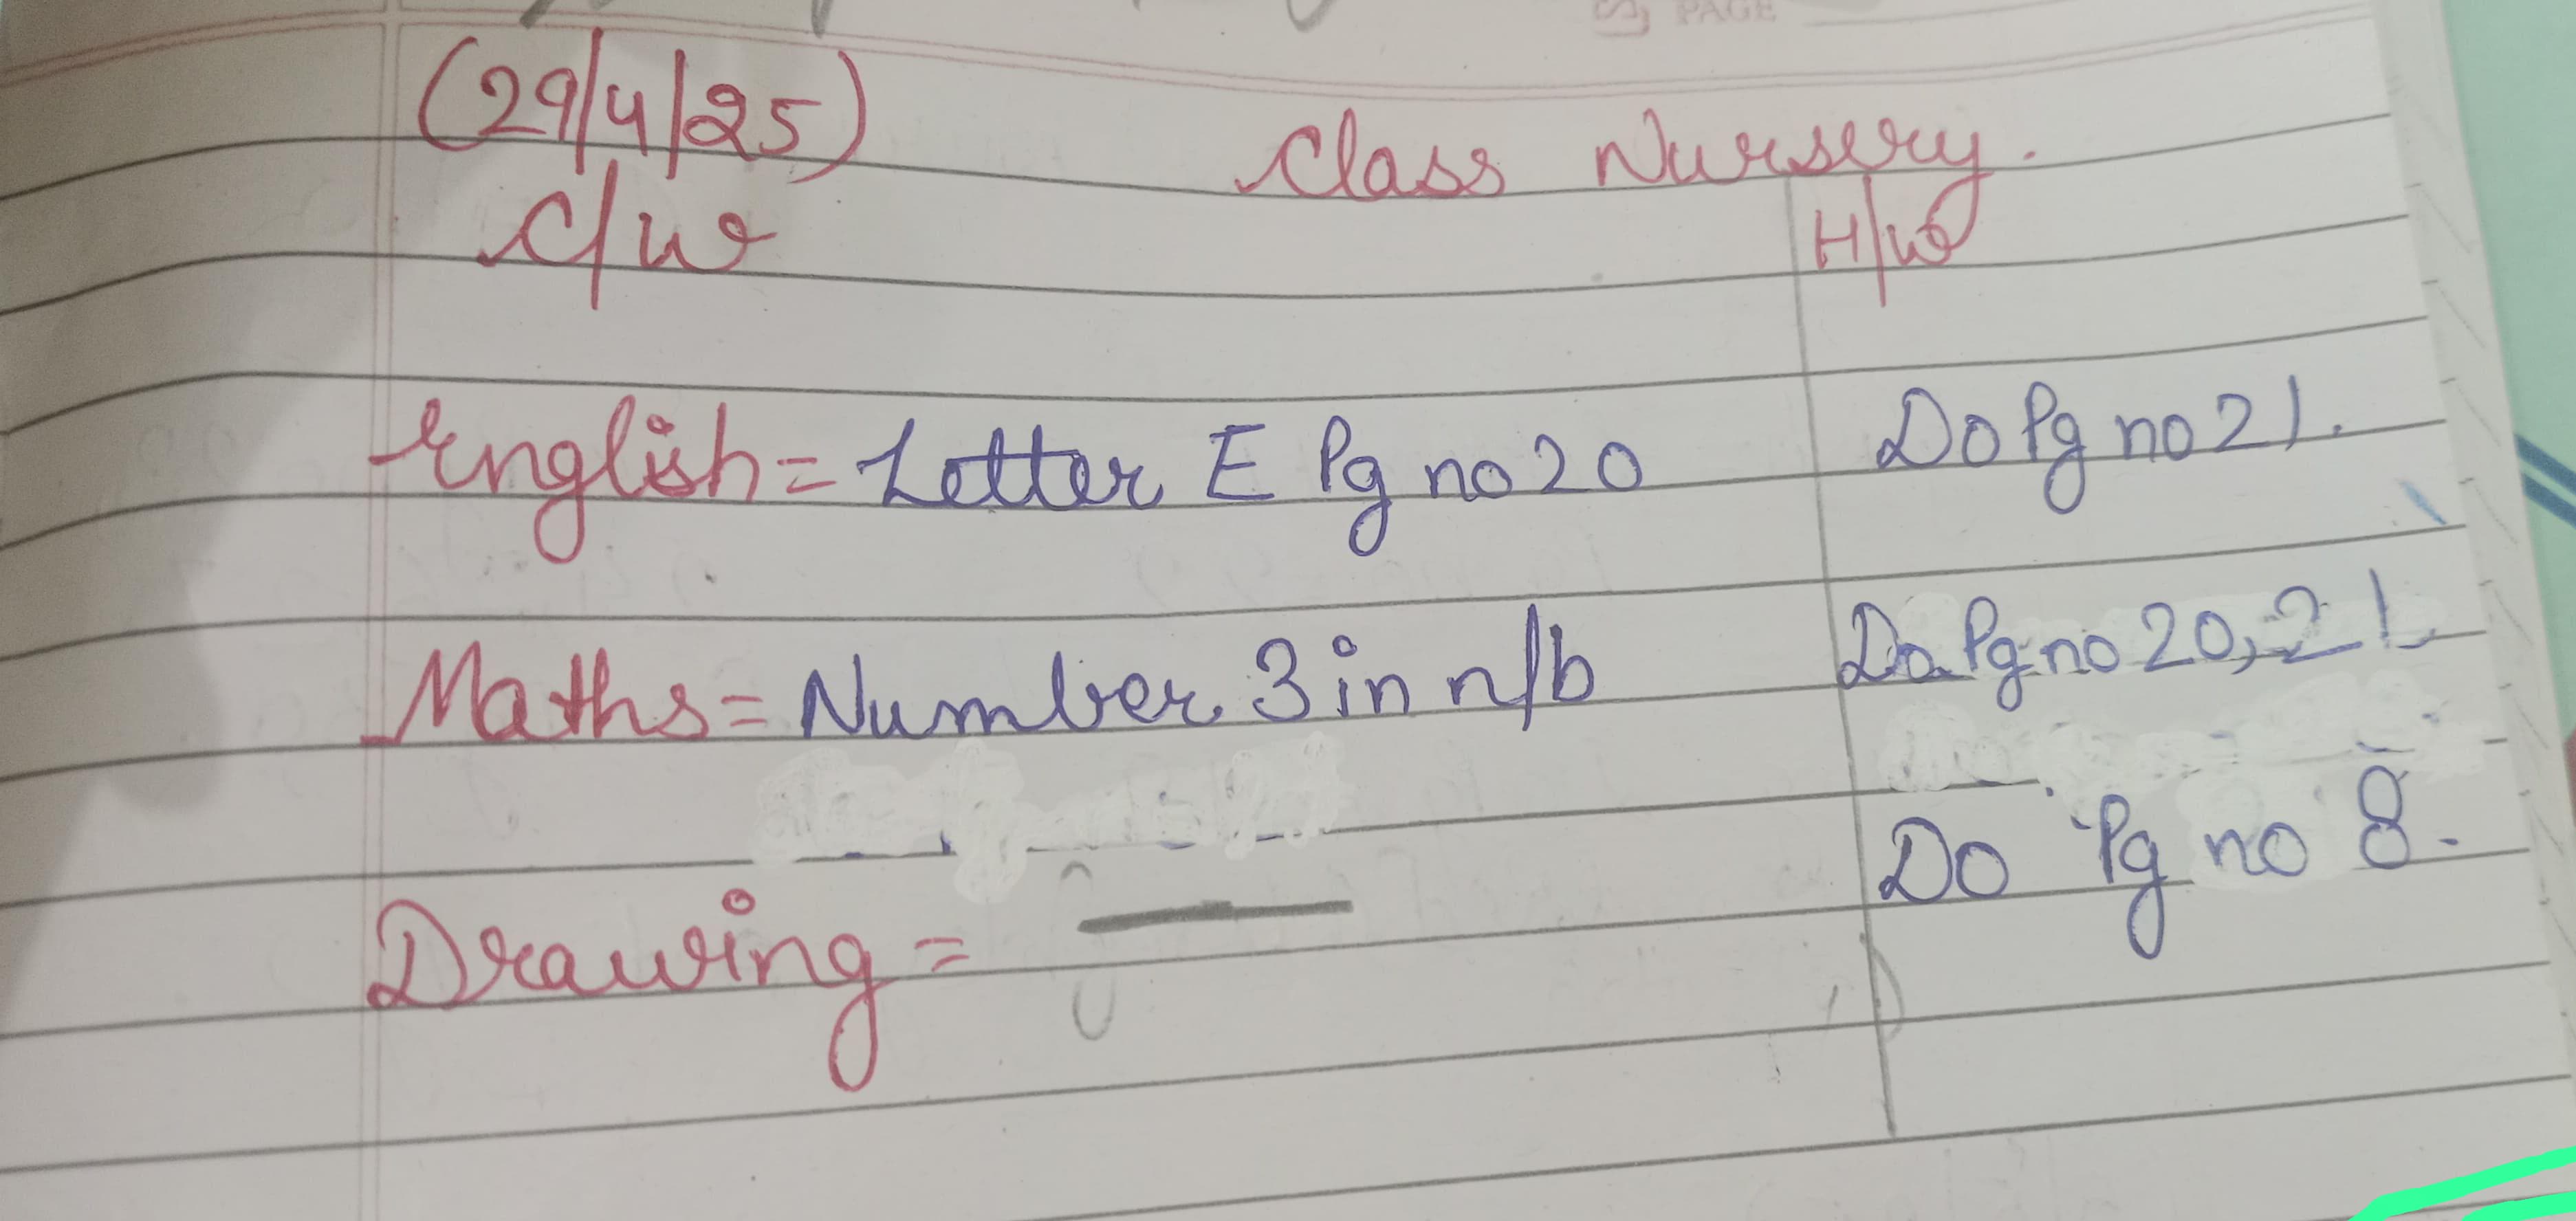 PAGE
(29/4/25) Class Nursery.
C/w H/w
English = Letter E Pg no 20 Do Pg no 21.
Maths = Number 3 in n/b Do Pg no 20, 21
Drawing = — Do Pg no 8.